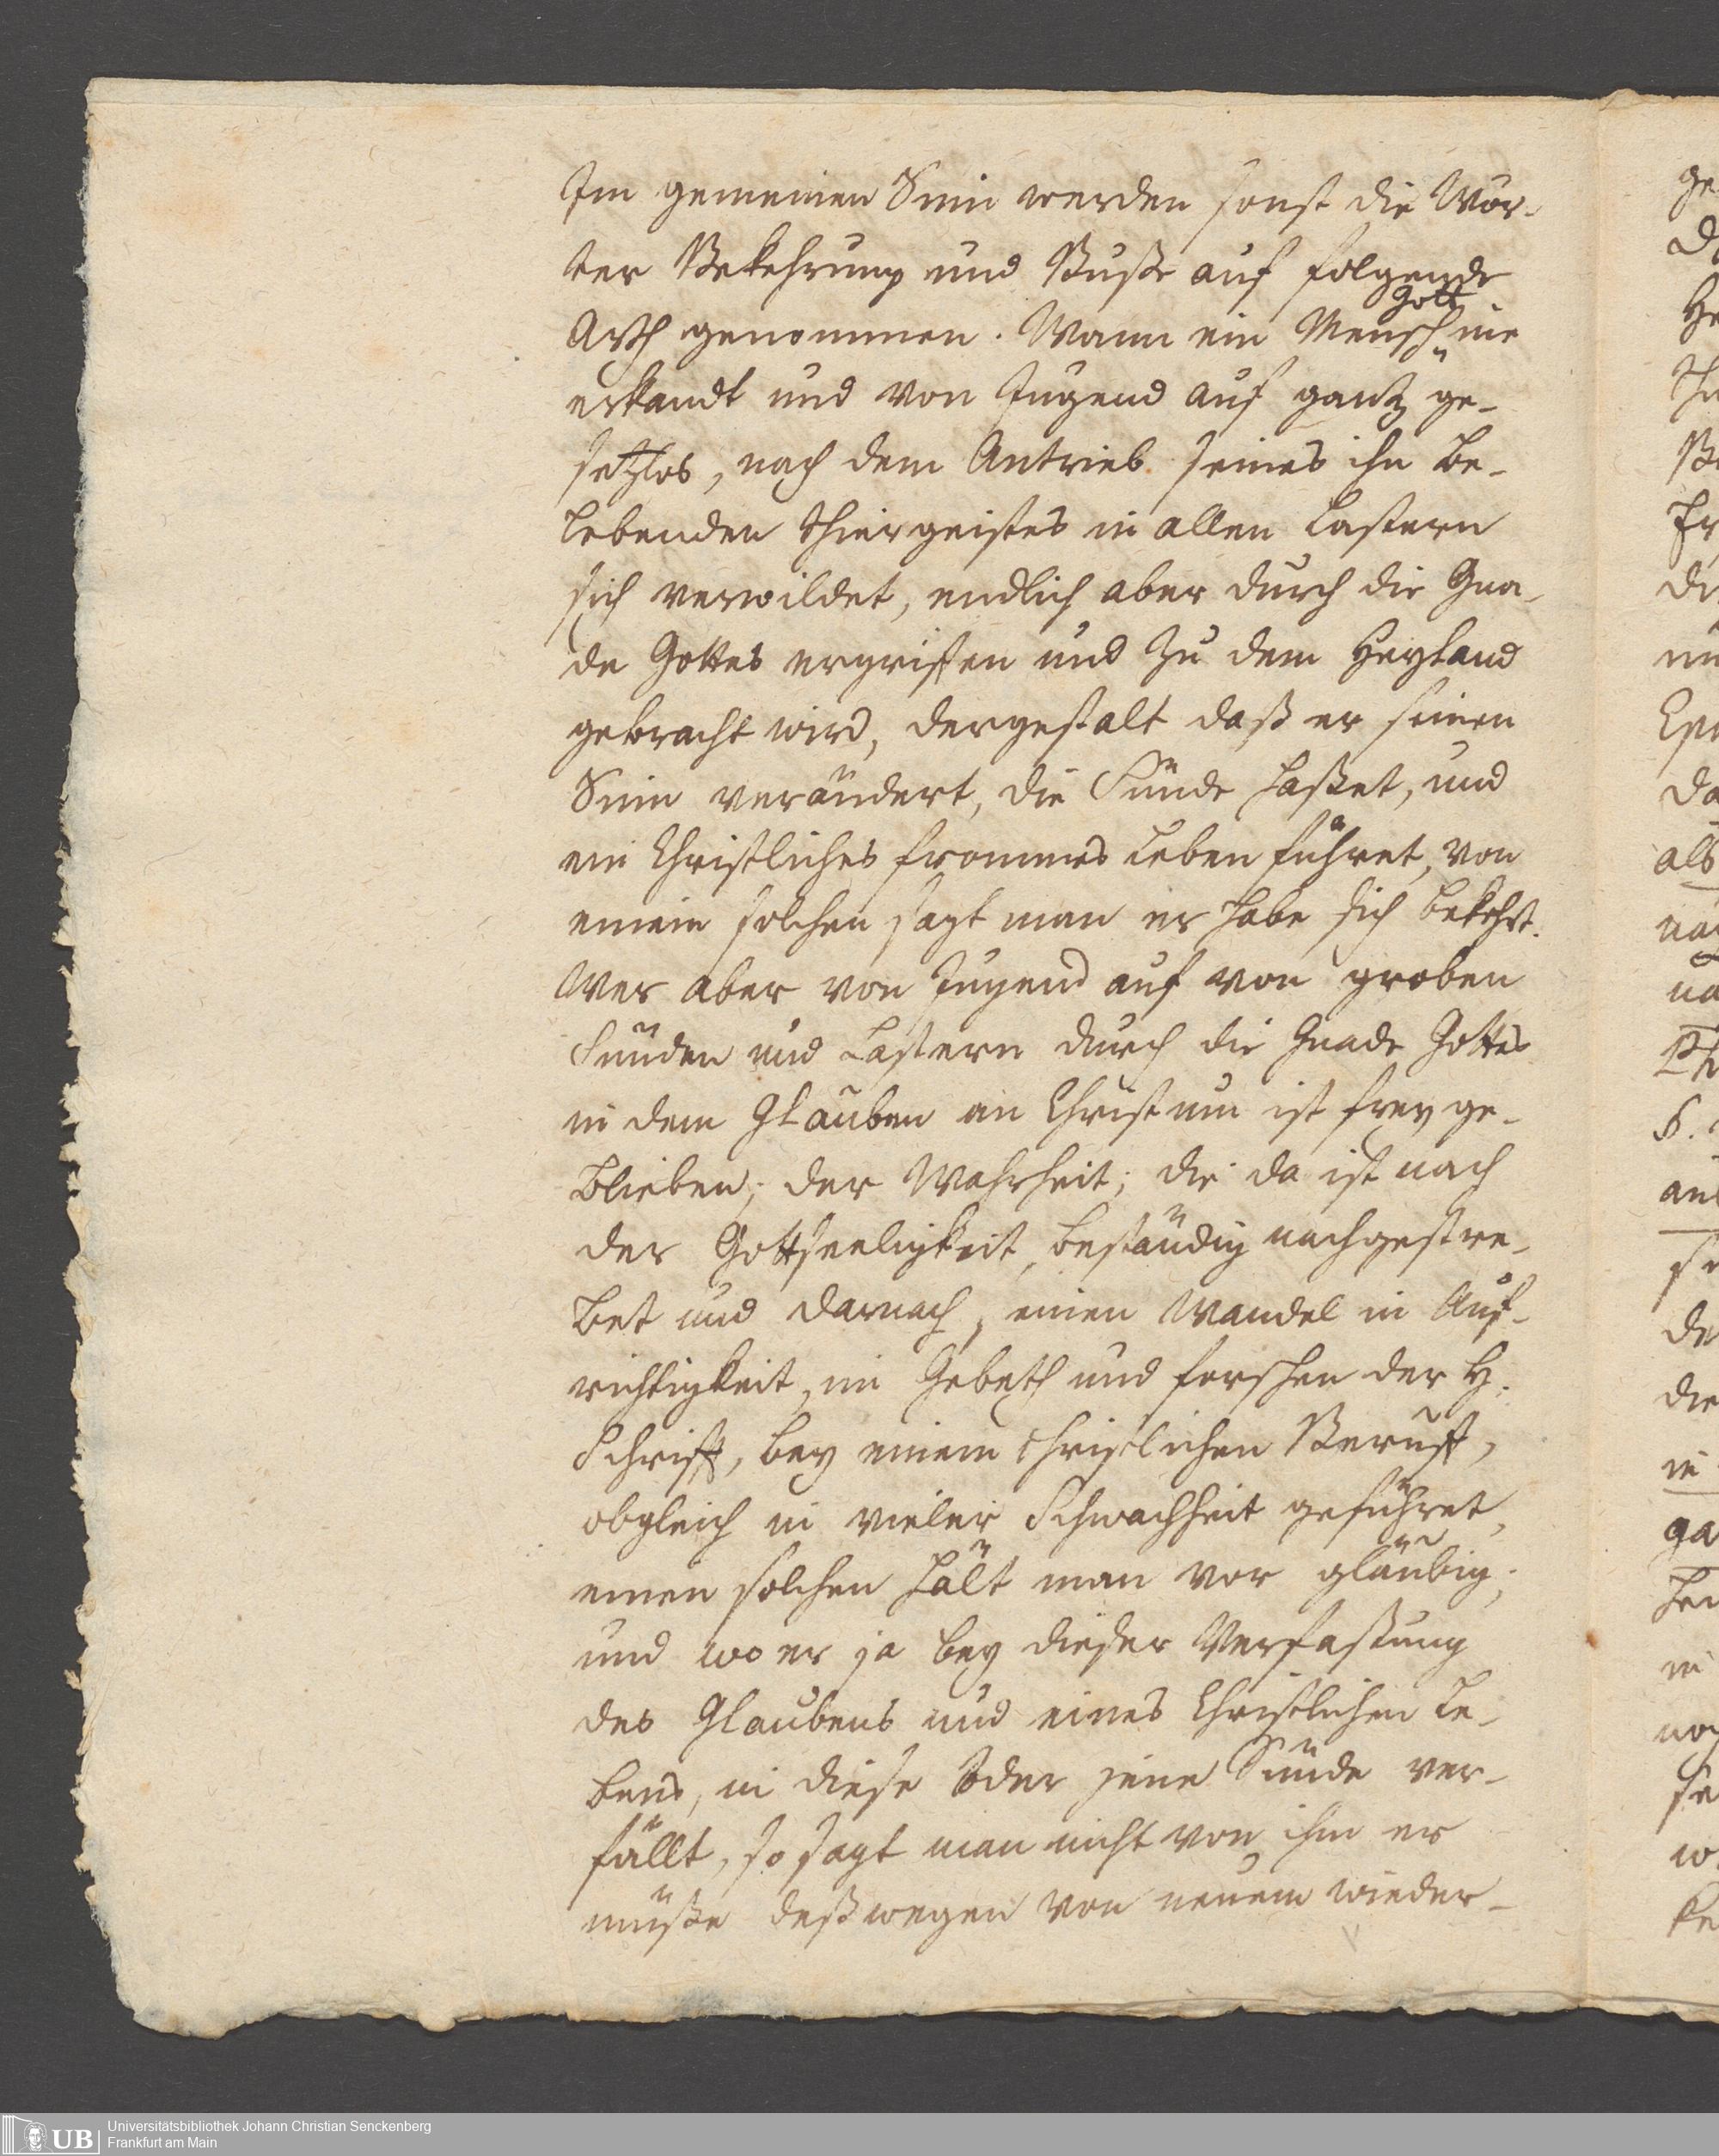 Im gemeinen Sinn werden sonst die Wör-
ter Bekehrung und Buße auf folgende
Gott
Arth genommen. Wann ein Mensch nie
erkandt und von Jugend auf gantz ge-
setzlos, nach dem Antrieb seines ihn be-
lebenden thiergeistes in allen Lastern
sich verwildet, endlich aber durch die Gna-
de Gottes ergriffen und zu dem Heyland
gebracht wird, dergestalt daß er seinen
Sinn verändert, die Sünde haßet, und
ein Christliches frommes Leben führet, von
einem solchen sagt man er habe sich bekehrt.
Wer aber von Jugend auf von groben
Sünden und Lastern durch die Gnade Gottes
in dem Glauben an Christum ist frey ge-
blieben; der Wahrheit; die da ist nach
der Gottseeligkeit, beständig nachgestre-
bet und darnach, einen Wandel in Auf-
richtigkeit, im Gebeth und forschen der H.
Schrifft, bey einem christlichen Beruff,
obgleich in vieler Schwachheit geführet,
einen solchen hält man vor gläubig;
und wo er ja bey dieser Verfaßung
des Glaubens und eines Christlichen Le-
bens, in diese oder jene Sünde ver-
fällt, so sagt man nicht von ihm er
müße deßwegen von neuem wieder-
Universitätsbibliothek Johann Christian Senckenberg
UB Frankfurt am Main